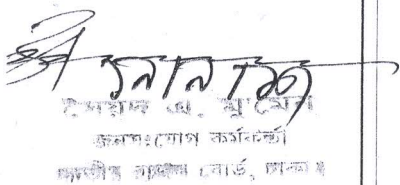 সৈয়দ এ, মু'মেন
জনসংযোগ কর্মকর্তা
জাতীয় রাজস্ব বোর্ড, ঢাকা।